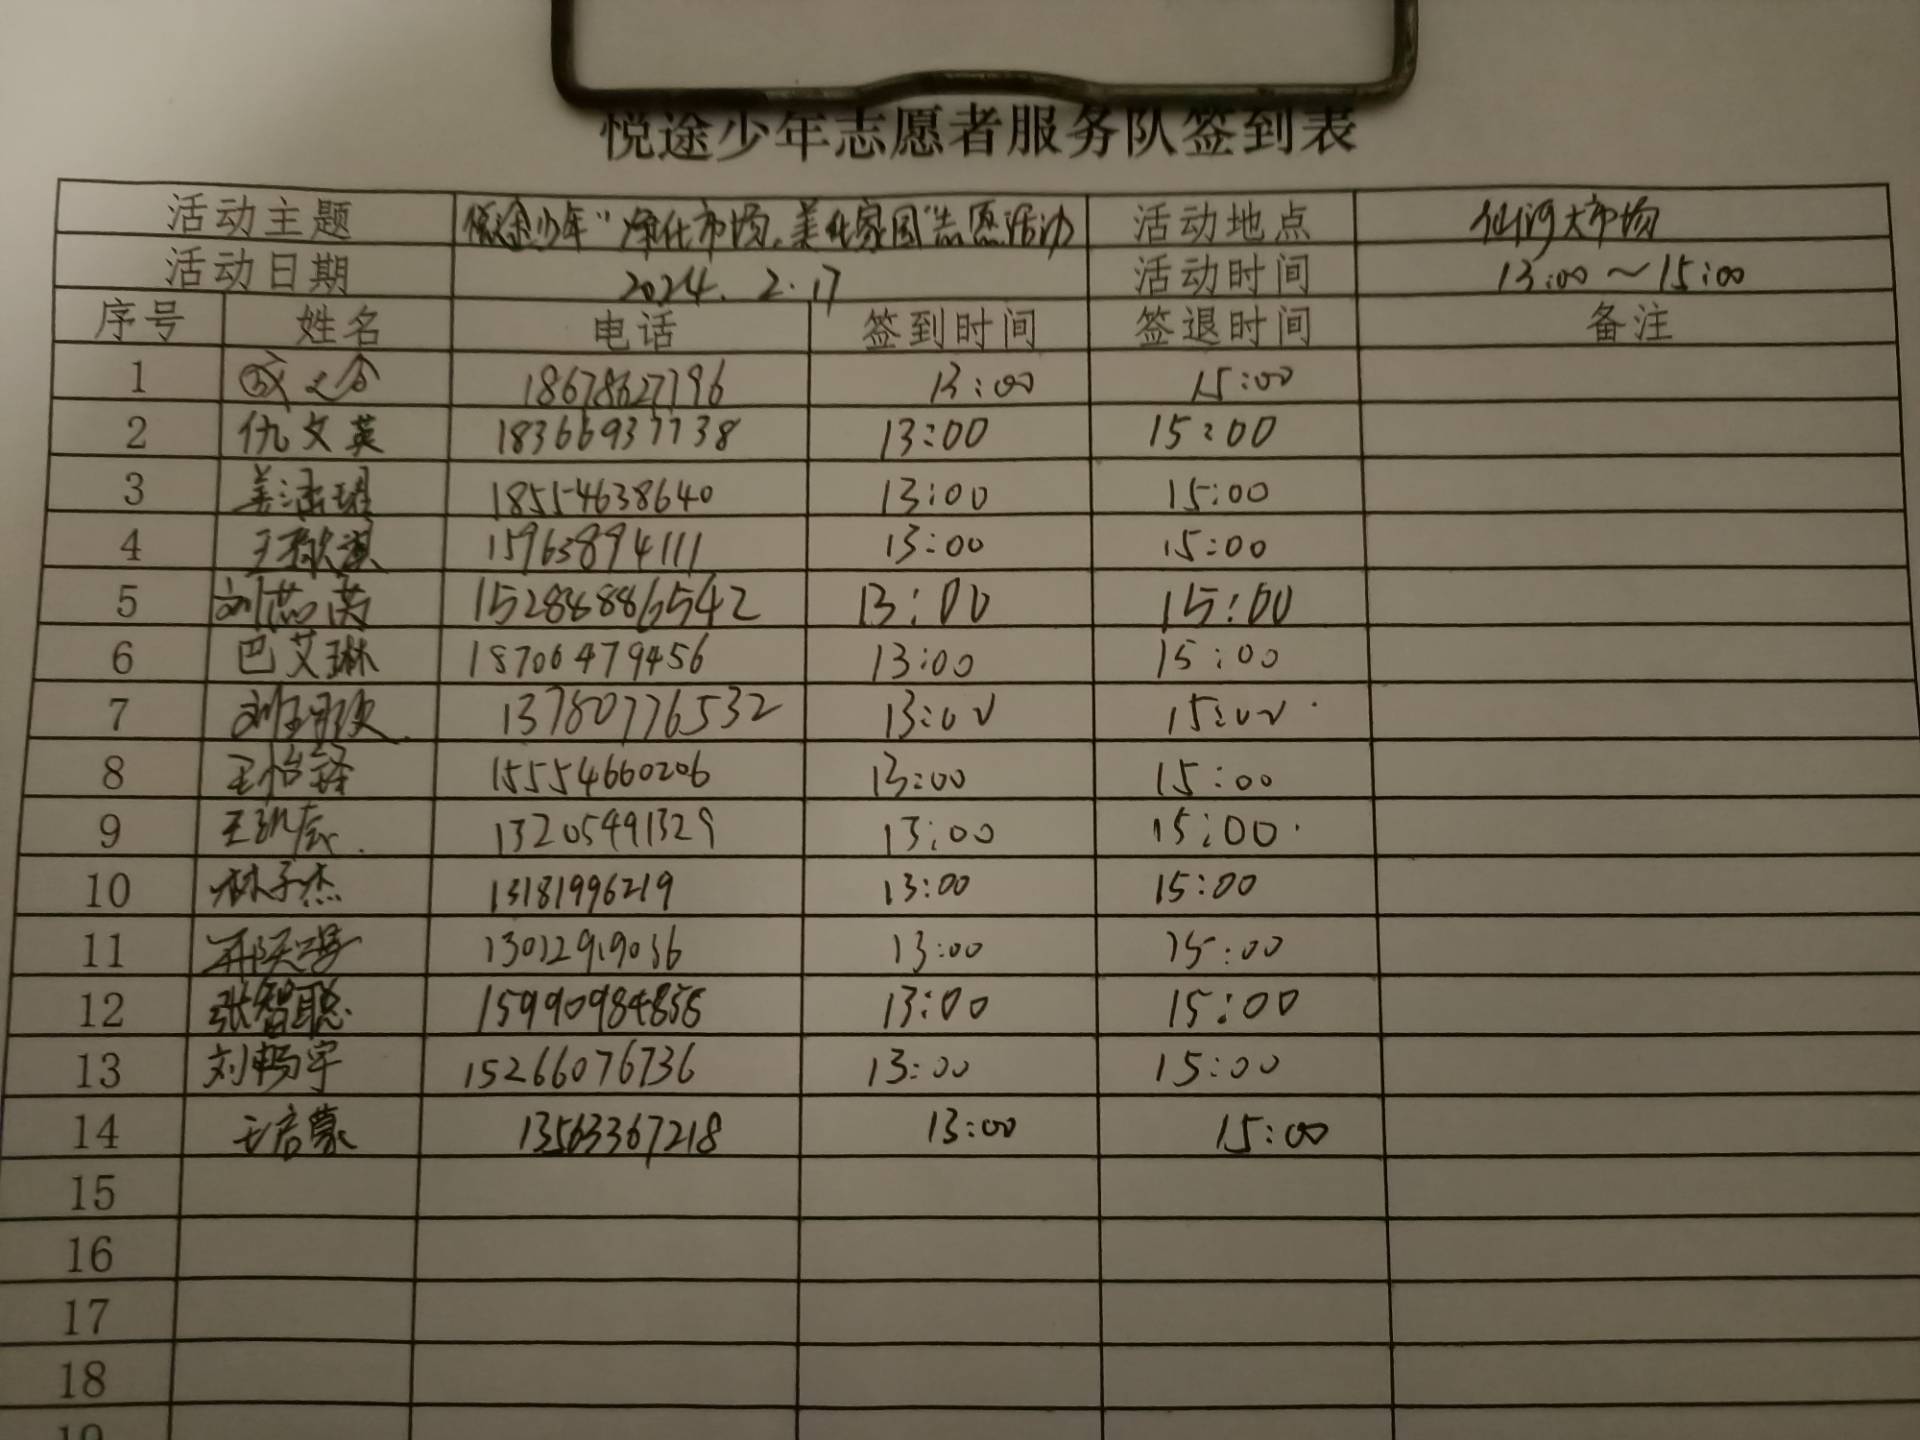 悦途少年志愿者服务队签到表
活动主题 悦途少年"净化市场、美化家园"志愿活动 活动地点 仙河大市场
活动日期 2024.2.17 活动时间 13:00～15:00
序号 姓名 电话 签到时间 签退时间 备注
1 18678627796 13:00 15:00
2 仇文英 18366937738 13:00 15:00
3 姜涵珺 18554638640 13:00 15:00
4 15963894111 13:00 15:00
5 刘芯芮 13:00 15:00
6 巴艾琳 18706479456 13:00 15:00
7 13780776532 13:00 15:00
8 王怡铎 15554660206 13:00 15:00
9 13205491329 13:00 15:00
10 林子杰 13181996219 13:00 15:00
11 13012919036 13:00 15:00
12 张智聪 13:00 15:00
13 刘畅宇 15266076736 13:00 15:00
14 王启蒙 13563367218 13:00 15:00
15
16
17
18
19